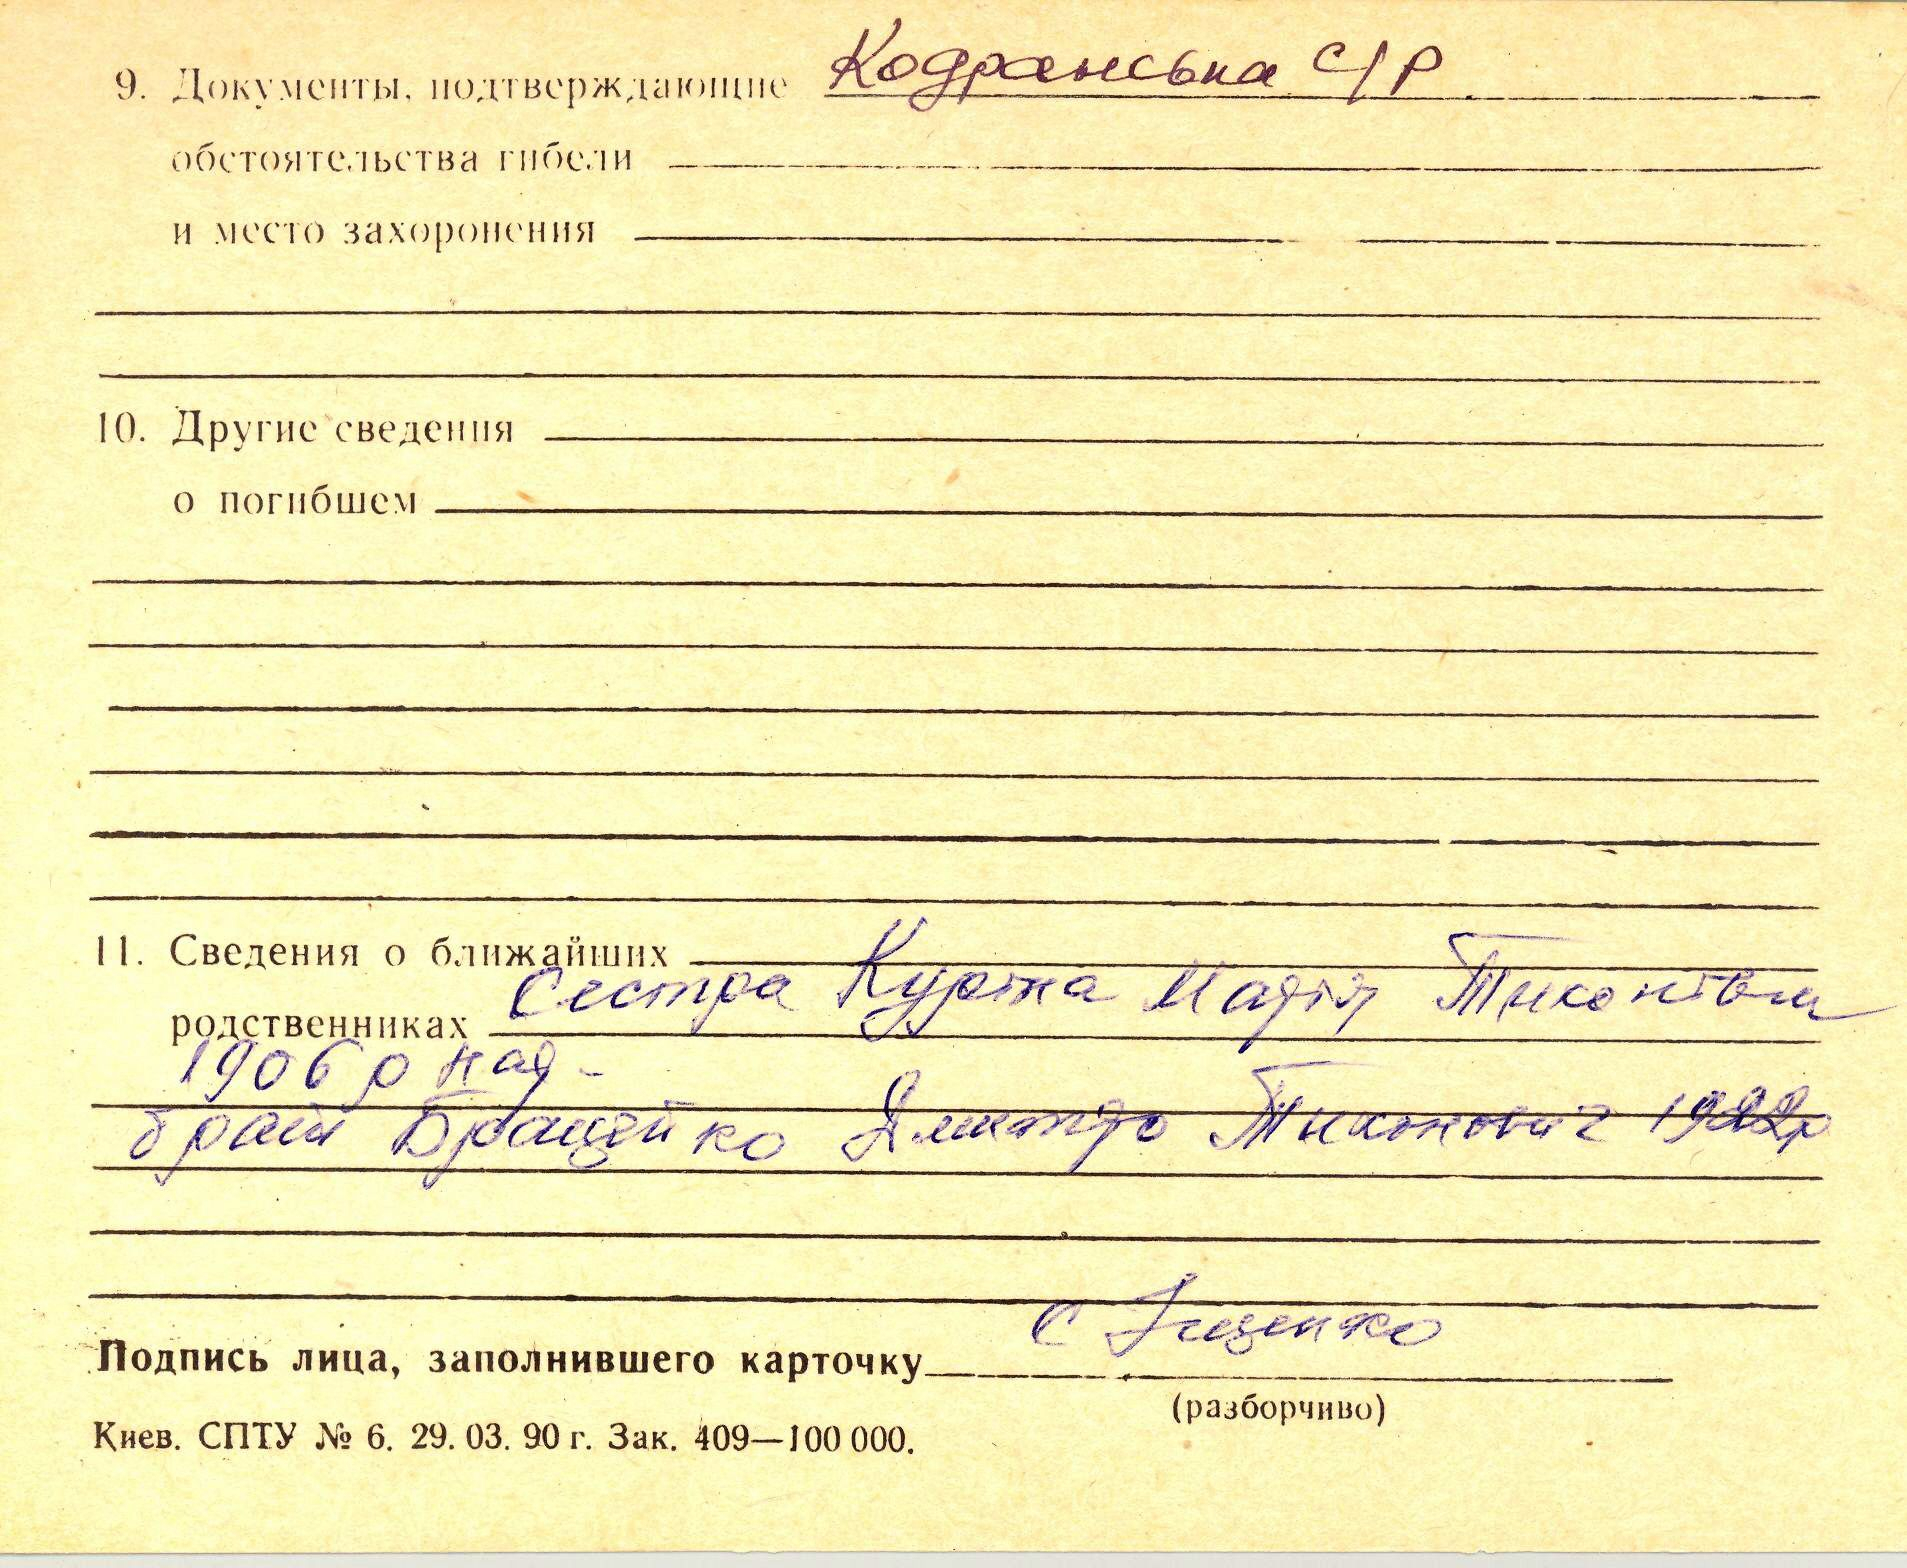 9. Документы, подтверждающие Кодранська с/р
обстоятельства гибели
и место захоронения
10. Другие сведения
о погибшем
11. Сведения о ближайших
родственниках Сестра Марія Тихонівна
1906 р нар -
брат Браценко Дмитро Тихонович 1922р
С Іщенко
Подпись лица, заполнившего карточку
(разборчиво)
Киев. СПТУ № 6. 29. 03. 90 г. Зак. 409—100 000.